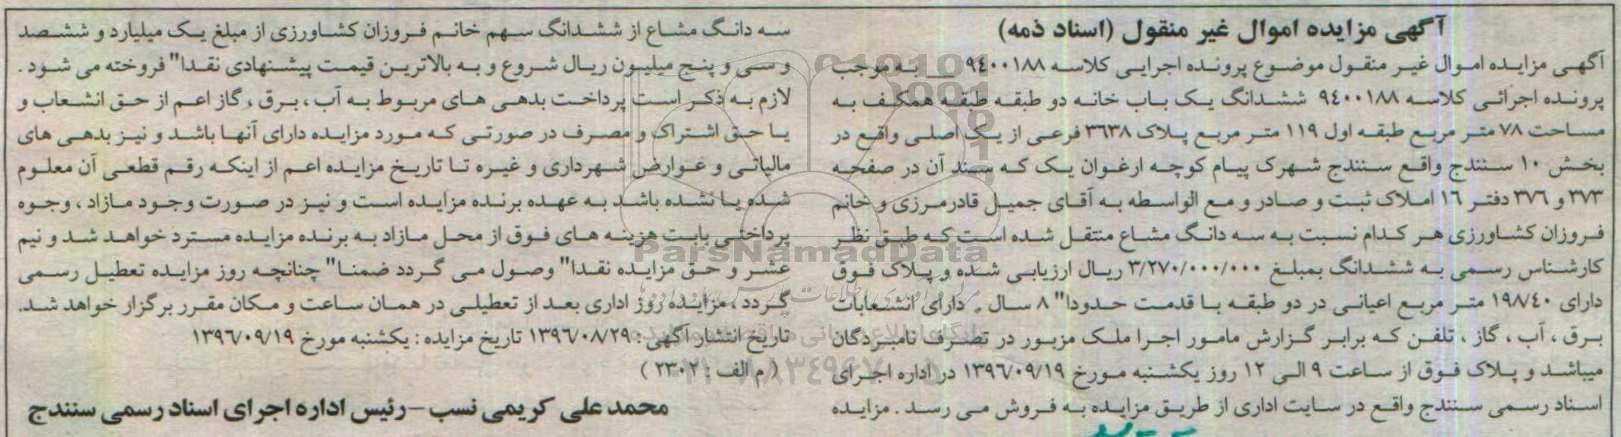 آگهی مزایده اموال غیر منقول (اسناد ذمه)
آگهی مزایده اموال غیر منقول موضوع پرونده اجرایی کلاسه ۹٤۰۰۱۸۸ __ به موجب
پرونده اجرائی کلاسه ۹٤۰۰۱۸۸ ششدانگ یک باب خانه دو طبقه طبقه همکف به
مساحت ۷۸ متر مربع طبقه اول ۱۱۹ متر مربع پلاک ۳٦۳۸ فرعی از یک اصلی واقع در
بخش ۱۰ سنندج واقع سنندج شهرک پیام کوچه ارغوان یک که سند آن در صفحه
۳۷۳ و ۳۷٦ دفتر ۱٦ املاک ثبت و صادر و مع الواسطه به آقای جمیل قادرمرزی و خانم
فروزان کشاورزی هر کدام نسبت به سه دانگ مشاع منتقل شده است که طبق نظر
کارشناس رسمی به ششدانگ بمبلغ ۳/۲۷۰/۰۰۰/۰۰۰ ریال ارزیابی شده و پلاک فوق
دارای ۱۹۸/٤۰ متر مربع اعیانی در دو طبقه با قدمت حدودا" ۸ سال . دارای انشعابات
برق ، آب ، گاز ، تلفن که برابر گزارش مامور اجرا ملک مزبور در تصرف نامبردگان
میباشد و پلاک فوق از ساعت ۹ الی ۱۲ روز یکشنبه مورخ ۱۳۹٦/۰۹/۱۹ در اداره اجرای
اسناد رسمی سنندج واقع در سایت اداری از طریق مزایده به فروش می رسد . مزایده
سه دانگ مشاع از ششدانگ سهم خانم فروزان کشاورزی از مبلغ یک میلیارد و ششصد
و سی و پنج میلیون ریال شروع و به بالاترین قیمت پیشنهادی نقدا" فروخته می شود .
لازم به ذکر است پرداخت بدهی های مربوط به آب ، برق ، گاز اعم از حق انشعاب و
یا حق اشتراک و مصرف در صورتی که مورد مزایده دارای آنها باشد و نیز بدهی های
مالیاتی و عوارض شهرداری و غیره تا تاریخ مزایده اعم از اینکه رقم قطعی آن معلوم
شده یا نشده باشد به عهده برنده مزایده است و نیز در صورت وجود مازاد ، وجوه
پرداختی بابت هزینه های فوق از محل مازاد به برنده مزایده مسترد خواهد شد و نیم
عشر و حق مزایده نقدا" وصول می گردد ضمنا" چنانچه روز مزایده تعطیل رسمی
گردد ، مزایده روز اداری بعد از تعطیلی در همان ساعت و مکان مقرر برگزار خواهد شد.
تاریخ انتشار آگهی : ۱۳۹٦/۰۸/۲۹ تاریخ مزایده : یکشنبه مورخ ۱۳۹٦/۰۹/۱۹
( م الف : ۲۳۰۲ )
محمد علی کریمی نسب – رئیس اداره اجرای اسناد رسمی سنندج
ParsNamadData